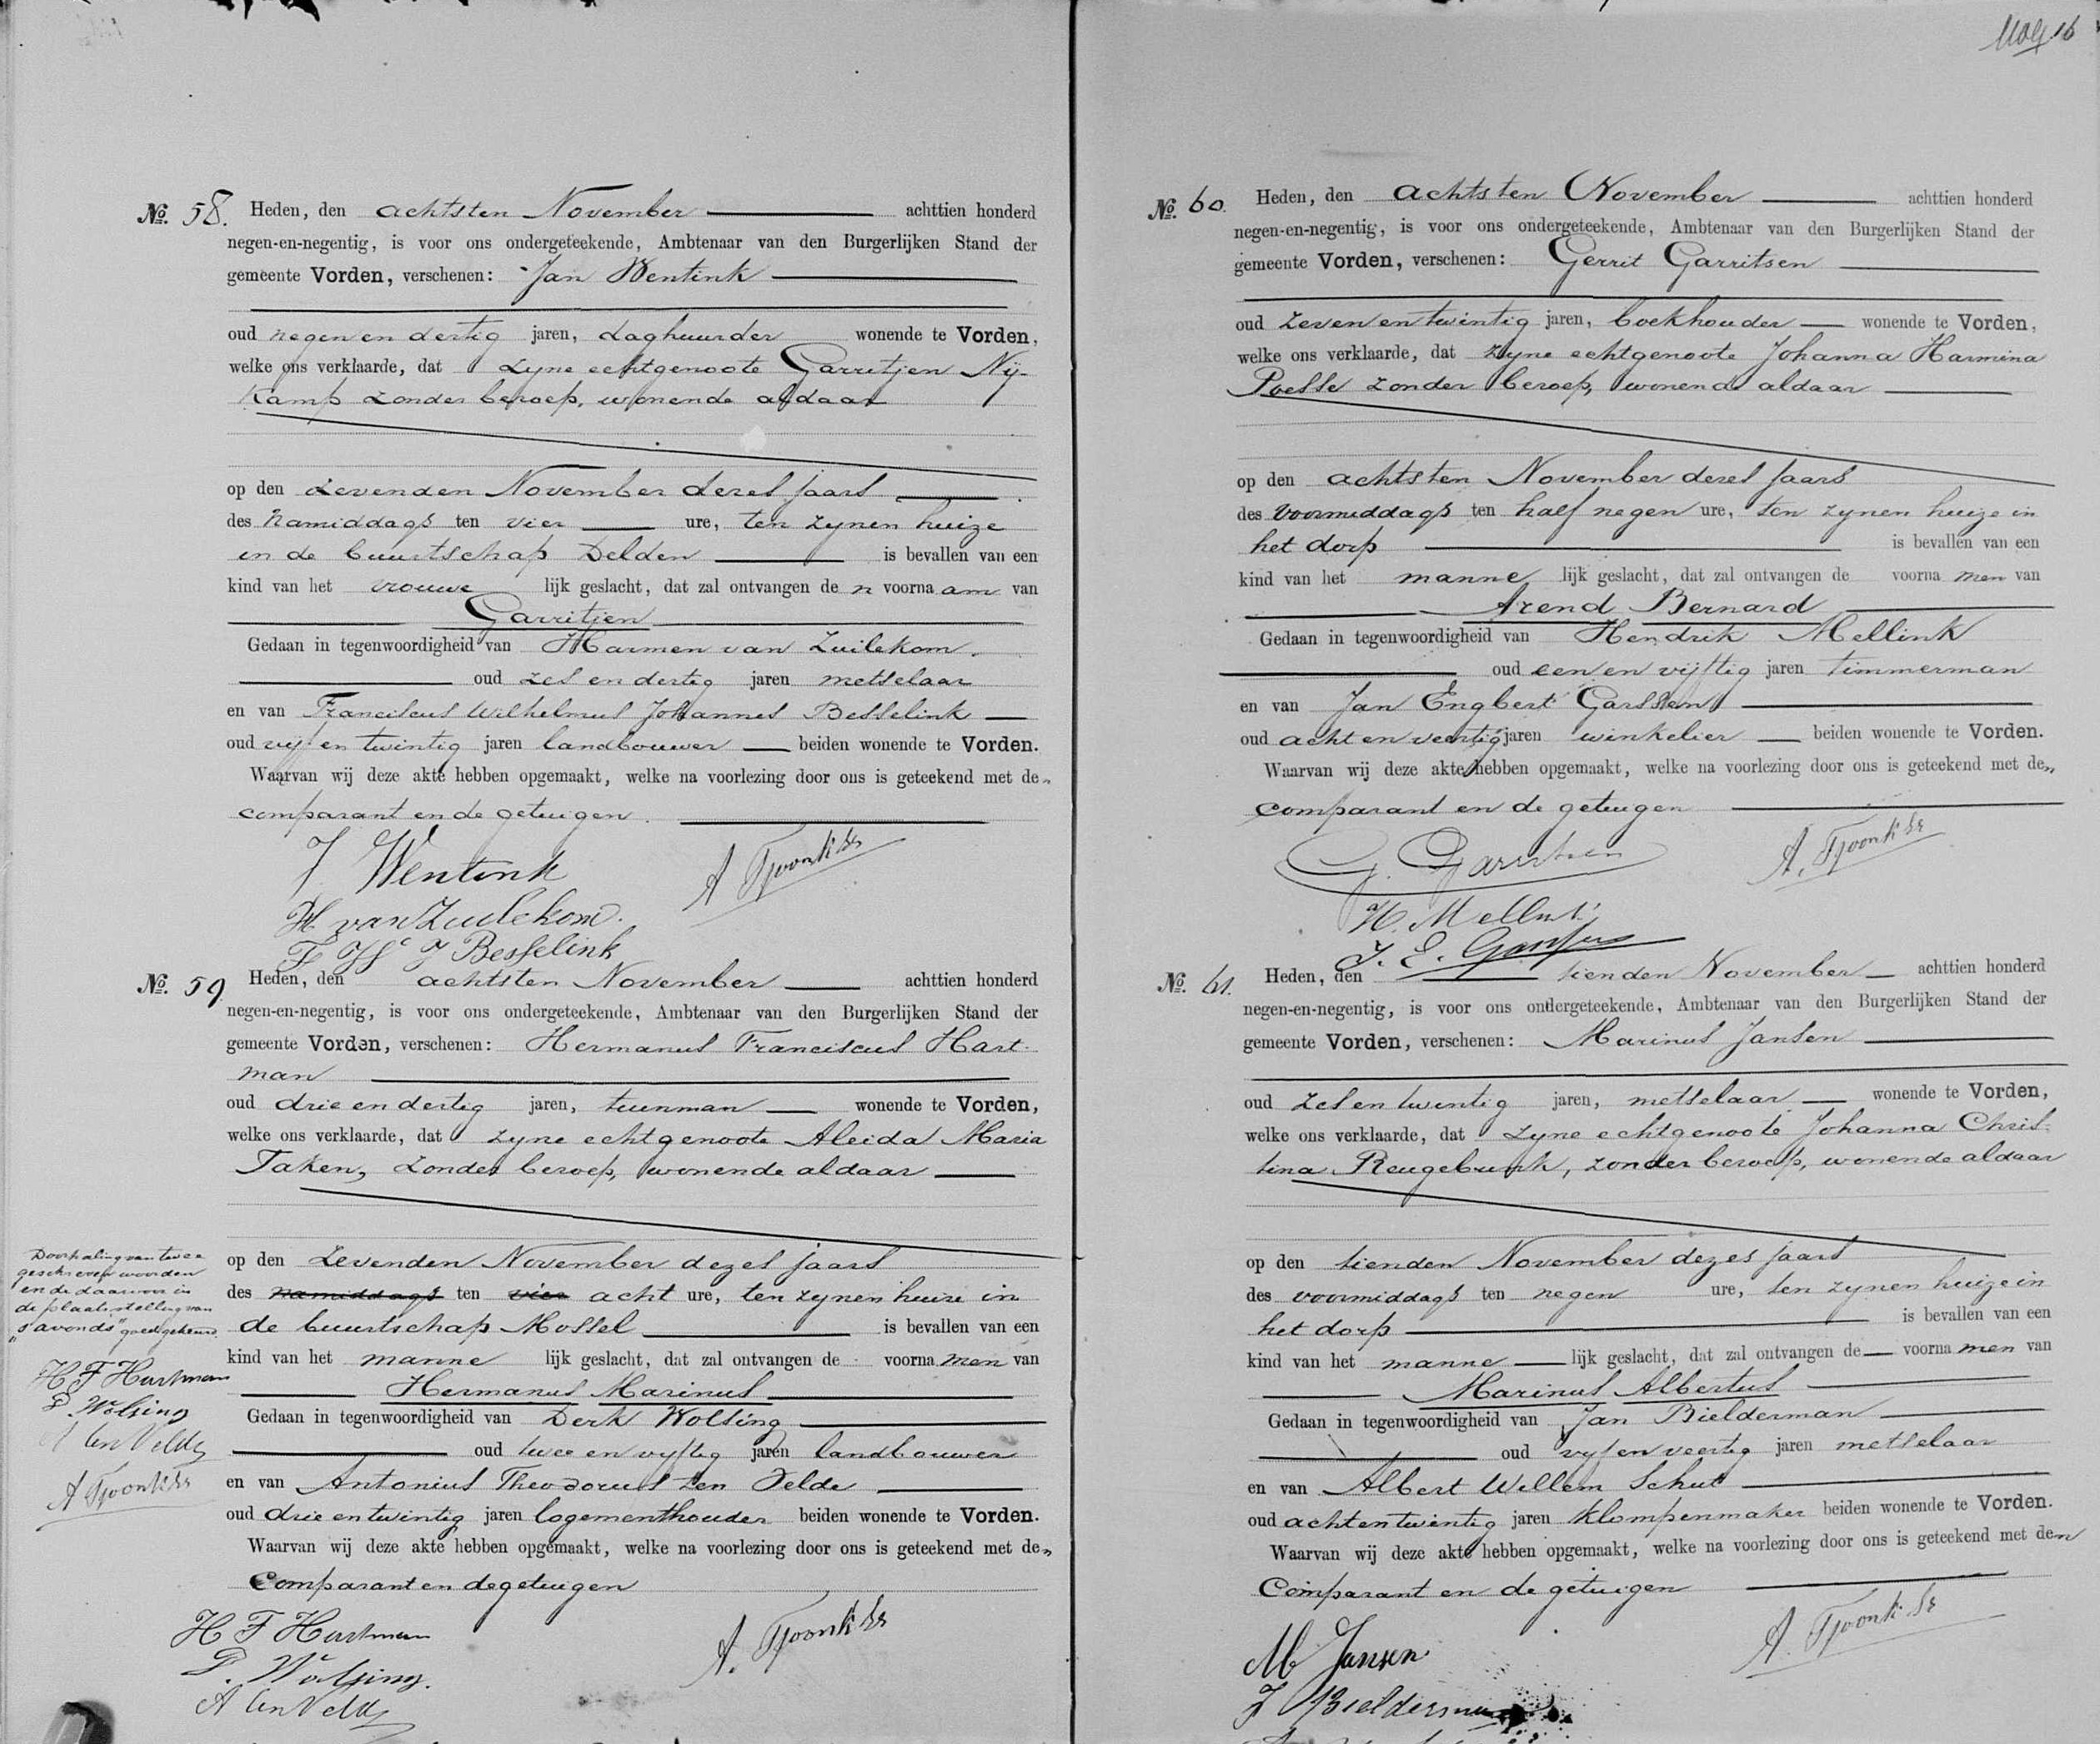 No. 58. Heden, den achtsten November achttien honderd
negen-en-negentig, is voor ons ondergeteekende, Ambtenaar van den Burgerlijken Stand der
gemeente Vorden, verschenen: Jan Wentink
oud negen en dertig jaren, daghuurder wonende te Vorden,
welke ons verklaarde, dat zyne echtgenoote Garritjen Nij-
kamp zonder beroep, wonende aldaar
op den zevenden November dezes jaars
des namiddags ten vier ure, ten zynen huize
in de buurtschap Delden is bevallen van een
kind van het vrouwe lijk geslacht, dat zal ontvangen de n voorna am van
Garritjen
Gedaan in tegenwoordigheid van Harmen van Zuilekom.
oud zes en dertig jaren metselaar
en van Franciscus Wilhelmus Johannes Besselink
oud vijf en twintig jaren landbouwer beiden wonende te Vorden.
Waarvan wij deze akte hebben opgemaakt, welke na voorlezing door ons is geteekend met de n
comparant en de getuigen.
J Wentink
A Tjoonk
H van Zuilekom.
F W J Besselink
No. 59 Heden, den achtsten November achttien honderd
negen-en-negentig, is voor ons ondergeteekende, Ambtenaar van den Burgerlijken Stand der
gemeente Vorden, verschenen: Hermanus Franciscus Hart-
man
oud drie en dertig jaren, tuinman wonende te Vorden,
welke ons verklaarde, dat zyne echtgenoote Aleida Maria
Taken, zonder beroep, wonende aldaar
op den zevenden November dezes jaars
des namiddags ten vier acht ure, ten zynen huize in
de buurtschap Mossel is bevallen van een
kind van het manne lijk geslacht, dat zal ontvangen de voorna men van
Hermanus Marinus
Gedaan in tegenwoordigheid van Derk Wolsing
oud twee en vyftig jaren landbouwer
en van Antonius Theodorus ten Velde
oud drie en twintig jaren logementhouder beiden wonende te Vorden.
Waarvan wij deze akte hebben opgemaakt, welke na voorlezing door ons is geteekend met de n
comparant en de getuigen
H F Hartman
A. Tjoonk
D. Wolsing.
A ten Velde
Doorhaling van twee
geschreven woorden
en de daarvoor in
de plaatsstelling van
"s'avonds" goedgekeurd.
H F Hartman
D. Wolsing
A ten Velde
A Tjoonk
No. 60. Heden, den achtsten November achttien honderd
negen-en-negentig, is voor ons ondergeteekende, Ambtenaar van den Burgerlijken Stand der
gemeente Vorden, verschenen: Gerrit Garritsen
oud zeven en twintig jaren, boekhouder wonende te Vorden,
welke ons verklaarde, dat zyne echtgenoote Johanna Harmina
Poesse zonder beroep, wonende aldaar
op den achtsten November dezes jaars
des voormiddags ten half negen ure, ten zynen huize in
het dorp is bevallen van een
kind van het manne lijk geslacht, dat zal ontvangen de voorna men van
Arend Bernard
Gedaan in tegenwoordigheid van Hendrik Mellink
oud een en vijftig jaren timmerman
en van Jan Engbert Garssen
oud acht en veertig jaren winkelier beiden wonende te Vorden.
Waarvan wij deze akte hebben opgemaakt, welke na voorlezing door ons is geteekend met de n
comparant en de getuigen
G. Garritsen
A. Tjoonk
H. Mellink
J. E. Garssen
No. 61. Heden, den tienden November achttien honderd
negen-en-negentig, is voor ons ondergeteekende, Ambtenaar van den Burgerlijken Stand der
gemeente Vorden, verschenen: Marinus Jansen
oud zes en twintig jaren, metselaar wonende te Vorden,
welke ons verklaarde, dat zyne echtgenoote Johanna Chris-
tina Reugebrink, zonder beroep, wonende aldaar
op den tienden November dezes jaars
des voormiddags ten negen ure, ten zynen huize in
het dorp is bevallen van een
kind van het manne lijk geslacht, dat zal ontvangen de voorna men van
Marinus Albertus
Gedaan in tegenwoordigheid van Jan Bielderman
oud vyf en veertig jaren metselaar
en van Albert Willem Schut
oud acht en twintig jaren klompenmaker beiden wonende te Vorden.
Waarvan wij deze akte hebben opgemaakt, welke na voorlezing door ons is geteekend met den
Comparant en de getuigen
M Jansen
A. Tjoonk
J Bielderman